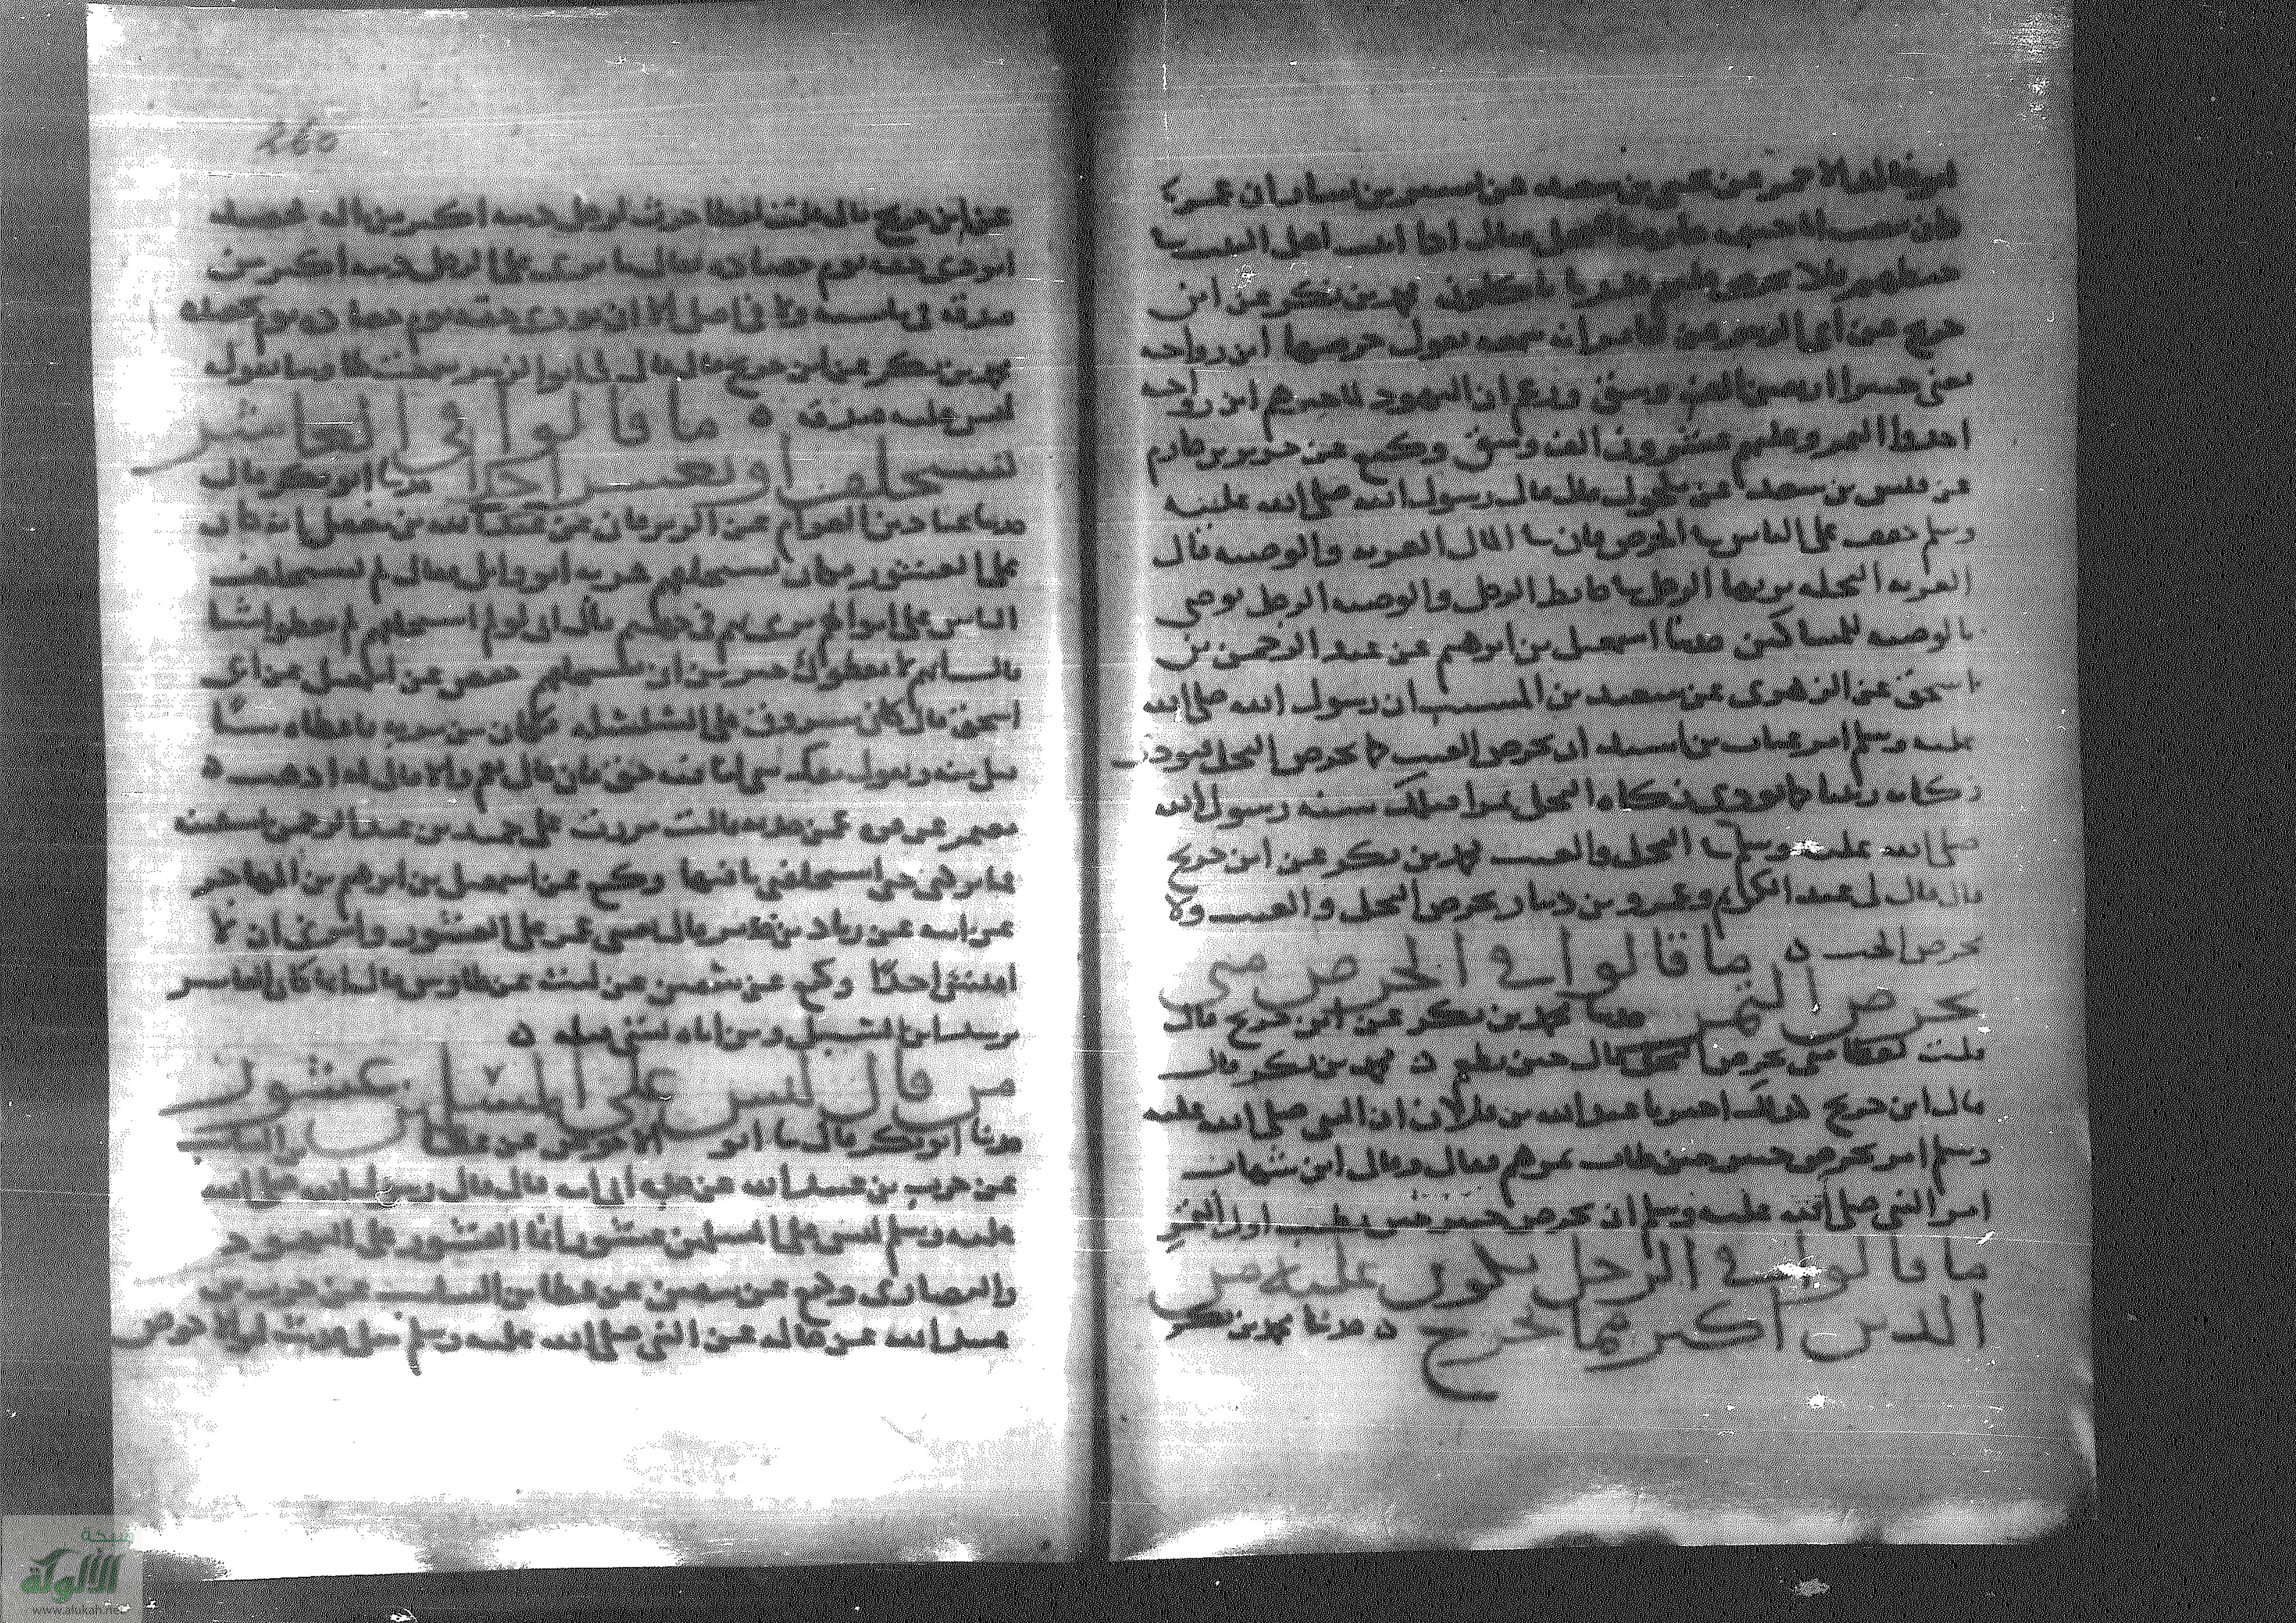 ابو خالد الاحمر عن يحيى بن سعيد عن بشير بن يسار ان عمر
كان يبعث ابا حثمة خارصا للنخل فقال اذا اتيت اهل البيت في
حائطهم فلا تخرص عليهم قدر ما ياكلون محمد بن بكر عن ابن
جريج عن ابى الزبير عن جابر انه سمعه يقول خرصها ابن رواحه
يعنى خيبر اربعين الف وسق وزعم ان اليهود لما خيرهم ابن رواحه
اخذوا التمر وعليهم عشرون الف وسق وكيع عن جرير بن حازم
عن قيس بن سعد عن مكحول قال قال رسول الله صلى الله عليه
وسلم خفف على الناس في الخرص فان في المال العريه والوصيه قال
العريه النخله يرثها الرجل في حائط الرجل والوصيه الرجل يوصى
بالوصيه للمساكين حدثنا اسمعيل بن ابرهيم عن عبد الرحمن بن
اسحق عن الزهرى عن سعيد بن المسيب ان رسول الله صلى الله
عليه وسلم امر عتاب بن اسيد ان يخرص العنب كما يخرص النخل فتودى
زكاته زبيبا كما تودى زكاه النخل تمرا فتلك سنه رسول الله
صلى الله عليه وسلم في النخل والعنب محمد بن بكر عن ابن جريج
قال قال لى عبد الكريم وعمرو بن دينار يخرص النخل والعنب ولا
يخرص الحب ه ما قالوا في الخرص متى
يخرص التمر حدثنا محمد بن بكر عن ابن جريج قال
قلت لعطا متى يخرص النخل قال حين يطعم ه محمد بن بكر قال
قال ابن جريج كذلك اخبرنا عبد الله بن فلان ان النبى صلى الله عليه
وسلم امر بخرص خيبر حين طاب تمرهم فقال وقال ابن شهاب
امر النبى صلى الله عليه وسلم ان يخرص خيبر حين يطيب اول التمر
ما قالوا في الرجل يكون عليه من
الدين اكثر مما يخرج ه حدثنا محمد بن بكر
260
عن ابن جريج قال قلت لعطا حرث لرجل دينه اكثر من ماله فحصد
ايودى حقه يوم حصاده قال ما نرى على الرجل دينه اكثر من
صدقه في ماشيه ولا في اصل الا ان يودى حقه يوم حصاده يوم يحصده
محمد بن بكر عن ابن جريج قال قال لى ابو الزبير سمعت طاوسا يقول
ليس عليه صدقه ه ما قالوا في العاشر
يستحلف او يفتش احدا حدثنا ابو بكر قال
حدثنا عباد بن العوام عن الزبرقان عن عبد الله بن معقل انه كان
على العشور فكان يستحلفهم فمر به ابو وائل فقال لم تستحلف
الناس على اموالهم ترمى بهم في جهنم فقال انى لو لم استحلفهم لم يعطوا شيا
قال انهم ان لا يعطوك خير من ان تستحلفهم حفص عن اسمعيل عن ابى
اسحق قال كان مسروق على السلسله فكان من مر به فاعطاه شيا
قبل منه ويقول معك شى لنا فيه حق فان قال نعم والا قال له اذهب ه
معتمر عن عمرو عن حدير قال مررت على حميد بن عبد الرحمن بسفينه
فما تركنى حتى استحلفنى ما فيها وكيع عن اسمعيل بن ابرهيم بن المهاجر
عن ابيه عن زياد بن حدير قال بعثنى عمر على العشور وامرنى ان لا
افتش احدا وكيع عن سفين عن ليث عن طاوس قال انما كان العاشر
يرشد ابن السبيل ومن اتاه بشى قبله ه
من قال ليس على المسلمين عشور
حدثنا ابو بكر قال حدثنا ابو الاحوص عن عطا بن السايب
عن حرب بن عبيد الله عن جده ابى امه قال قال رسول الله صلى الله
عليه وسلم ليس على المسلمين عشور انما العشور على اليهود
والنصارى وكيع عن سفين عن عطا بن السايب عن حرب بن
عبيد الله عن خاله عن النبى صلى الله عليه وسلم